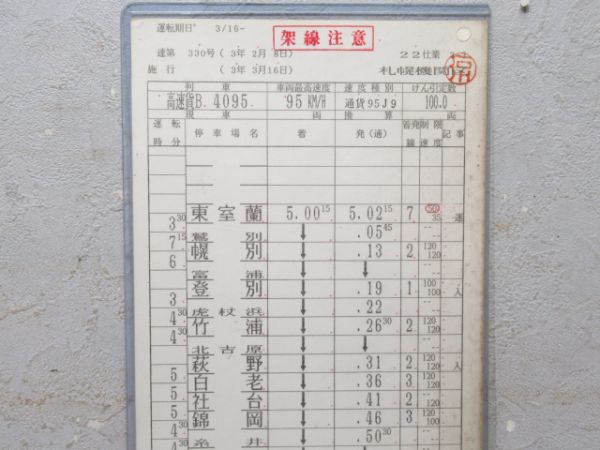 運転期日 3/16-
架線注意
達第 330号 (3年 2月 8日) 22仕業
施行 (3年 3月16日) 札幌機関区
列車 車両最高速度 速度種別 けん引定数
高速貨B 4095 95KM/H 通貨95J9 100.0
現車 両 換算 両
運転時分 停車場名 着 発(通) 着発線 制限速度 記事
東室蘭 5.00 15 5.02 15 7 50 35 運
3 30
鷲別 ↓ .05 45
7 15
幌別 ↓ .13 2 120 120
6
富浦 ↓ ↓
登別 ↓ .19 1 100 100 入
3
虎杖浜 ↓ .22
4 30
竹浦 ↓ .26 30 2 120 120
4 30
北吉原 ↓ ↓
萩野 ↓ .31 2 120 120 入
5
白老 ↓ .36 3 120 120
5
社台 ↓ .41 2 120 120
5
錦岡 ↓ .46 3 120 120
4 30
糸井 ↓ .50 30
4 30